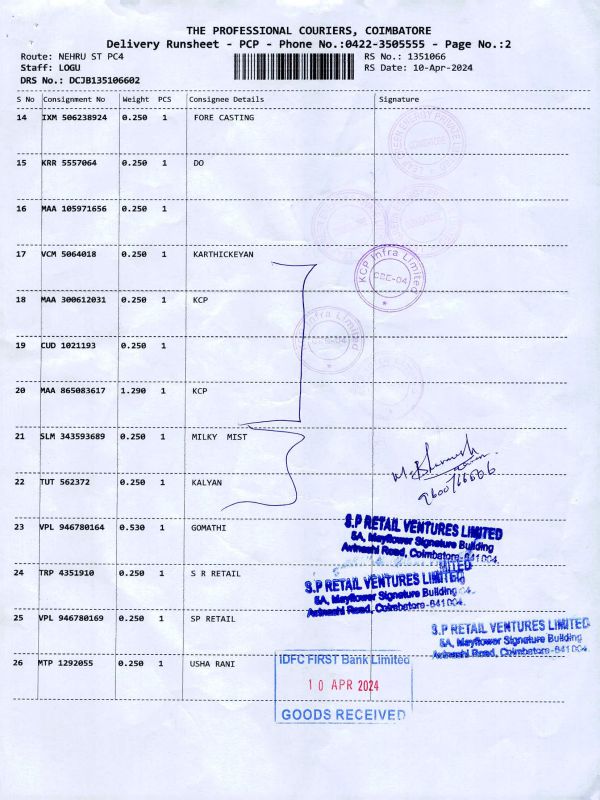 THE PROFESSIONAL COURIERS, COIMBATORE
Delivery Runsheet - PCP - Phone No.:0422-3505555 - Page No.:2
Route: NEHRU ST PC4 RS No.: 1351066
Staff: LOGU RS Date: 10-Apr-2024
DRS No.: DCJB135106602
S No Consignment No Weight PCS Consignee Details Signature
14 IXM 506238924 0.250 1 FORE CASTING
15 KRR 5557064 0.250 1 DO
16 MAA 105971656 0.250 1
17 VCM 5064018 0.250 1 KARTHICKEYAN
KCP Infra Limited
CBE-04
18 MAA 300612031 0.250 1 KCP
Infra Limited
19 CUD 1021193 0.250 1
20 MAA 865083617 1.290 1 KCP
21 SLM 343593689 0.250 1 MILKY MIST
22 TUT 562372 0.250 1 KALYAN
23 VPL 946780164 0.530 1 GOMATHI
S.P RETAIL VENTURES LIMITED
5A, Mayflower Signature Building
Avinashi Road, Coimbatore-641 004.
24 TRP 4351910 0.250 1 S R RETAIL
S.P RETAIL VENTURES LIMITED
5A, Mayflower Signature Building
Avinashi Road, Coimbatore-641 004.
25 VPL 946780169 0.250 1 SP RETAIL
S.P RETAIL VENTURES LIMITED
5A, Mayflower Signature Building
Avinashi Road, Coimbatore-641 004.
26 MTP 1292055 0.250 1 USHA RANI
IDFC FIRST Bank Limited
10 APR 2024
GOODS RECEIVED